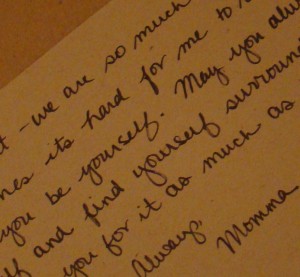 t - we are so much
nes its hard for me to
you be yourself. May you alw
f and find yourself surroun
you for it as much as
Always,
Momma